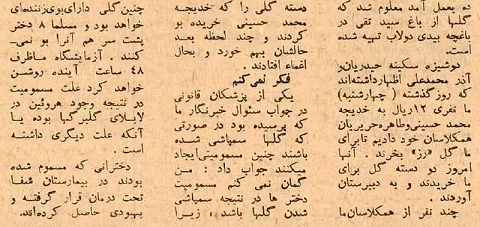 ده بعمل آمد معلوم شد که
گلها از باغ سید تقی در
باغچه بیدی دولاب تهیه شده
است.
دوشیزه سکینه حیدریان و
آذر محمدعلی اظهارداشته‌اند
که روزگذشته (چهارشنبه)
ما نفری ۱۲ریال به خدیجه
محمد حسینی وطاهره‌حریریان
همکلاسان خود دادیم تابرای
ما گل «رز» بخرند. آنها
امروز دو دسته گل برای
ما خریدند و به دبیرستان
آوردند.
چند نفر از همکلاسان‌ما
دسته گلی را که خدیجه
محمد حسینی خریده بو
کردند و چند لحظه بعد
حالشان بهم خورد و بحال
اغماء افتادند.
فکر نمی‌کنم
یکی از پزشکان قانونی
در جواب سئوال خبرنگار ما
که پرسیده بود در صورتی
که گلها سمپاشی شده
باشند چنین مسمومتی‌ایجاد
میکنند جواب داد: من
گمان نمی کنم مسمومیت
دختر ها در نتیجه سمپاشی
شدن گلها باشد، زیرا
چنین‌گلی دارای‌بوی‌زننده‌ای
خواهد بود و مسلما ۸ دختر
پشت سر هم آنرا بو نمی‌ـ
کنند. آزمایشگاه ماظرف
۴۸ ساعت آینده روشن
خواهد کرد علت مسمومیت
در نتیجه وجود هروئین در
لابلای گلبرگها بوده یا
آنکه علت دیگری داشته
است.
دخترانی که مسموم شده
بودند در بیمارستان شفا
تحت درمان قرار گرفته و
بهبودی حاصل کرده‌اند.